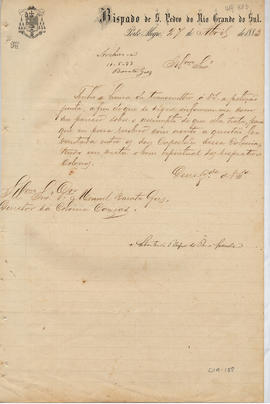 Bispado de S. Pedro do Rio Grande do Sul.
Porto Alegre, 27 de Abril de 1883
Archive-se
11-5-83
Barata Góes
Illmo. Sr.
Tenho a honra de transmittir a V. S. a petição
junta, a fim de que se digne informar-me dar
seu parecer sobre o assumpto de que ella trata, para
que eu possa resolver com acerto a questão le-
vantada entre os dous Capellães dessa Colonia,
tendo em vista o bem espiritual dos respectivos
Colonos.
Deus Gde. a V. S.
Illmo. Sr. Dr. Manoel Barata Góes
Director da Colonia Caxias